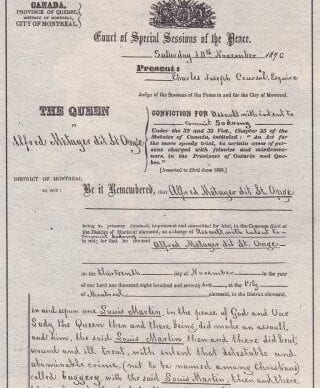 CANADA,
PROVINCE OF QUEBEC,
DISTRICT OF MONTREAL,
CITY OF MONTREAL.
Court of Special Sessions of the Peace.
Saturday 18th November 1876
Present:
Charles Joseph Coursol, Esquire
Judge of the Sessions of the Peace in and for the City of Montreal.
THE QUEEN
vs.
Alfred Metayer dit St. Onge
CONVICTION FOR Assault with intent to
commit Sodomy
Under the 32 and 33 Vict., Chapter 35 of the
Statutes of Canada, intituled: "An Act
for the more speedy trial, in certain cases of per-
sons charged with felonies and misdemean-
ors, in the Provinces of Ontario and Que-
bec."
[Assented to 22nd June 1869.]
DISTRICT OF MONTREAL
to wit:
Be it Remembered, that Alfred Metayer dit St. Onge
being a prisoner detained, imprisoned and committed for trial, in the Common Gaol of
the District of Montreal aforesaid, on a charge of Assault with intent to
commit Sodomy
to wit; for that he the said Alfred Metayer dit St. Onge
on the thirteenth day of November in the year
of our Lord one thousand eight hundred and seventy six at the City
of Montreal aforesaid, in the District aforesaid,
in and upon one Louis Martin, in the peace of God and Our
Lady the Queen then and there being, did make an assault,
and him, the said Louis Martin then and there did beat
wound and ill treat, with intent that detestable and
abominable crime, (not to be named among Christians)
called buggery, with the said Louis Martin, then and there